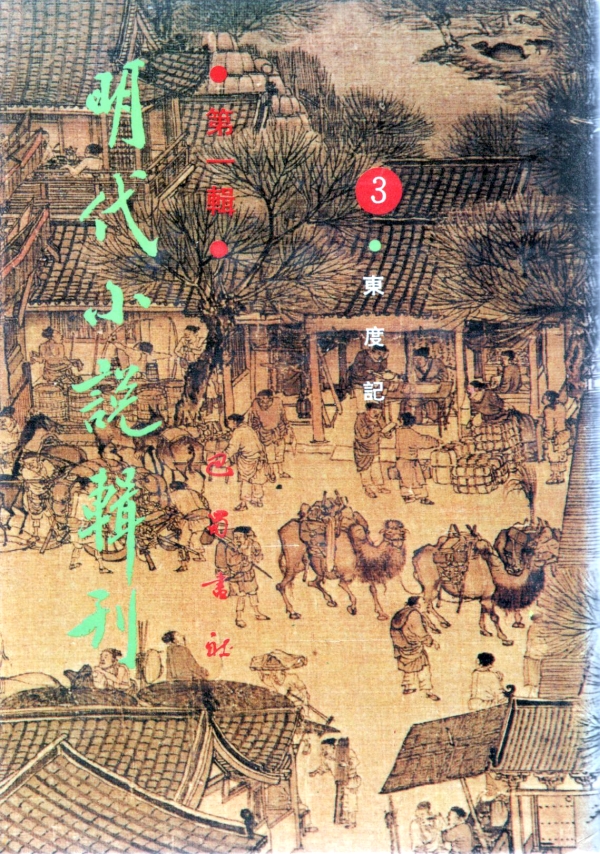 明代小說輯刊
●第一輯●
巴蜀書社
3
●東度記